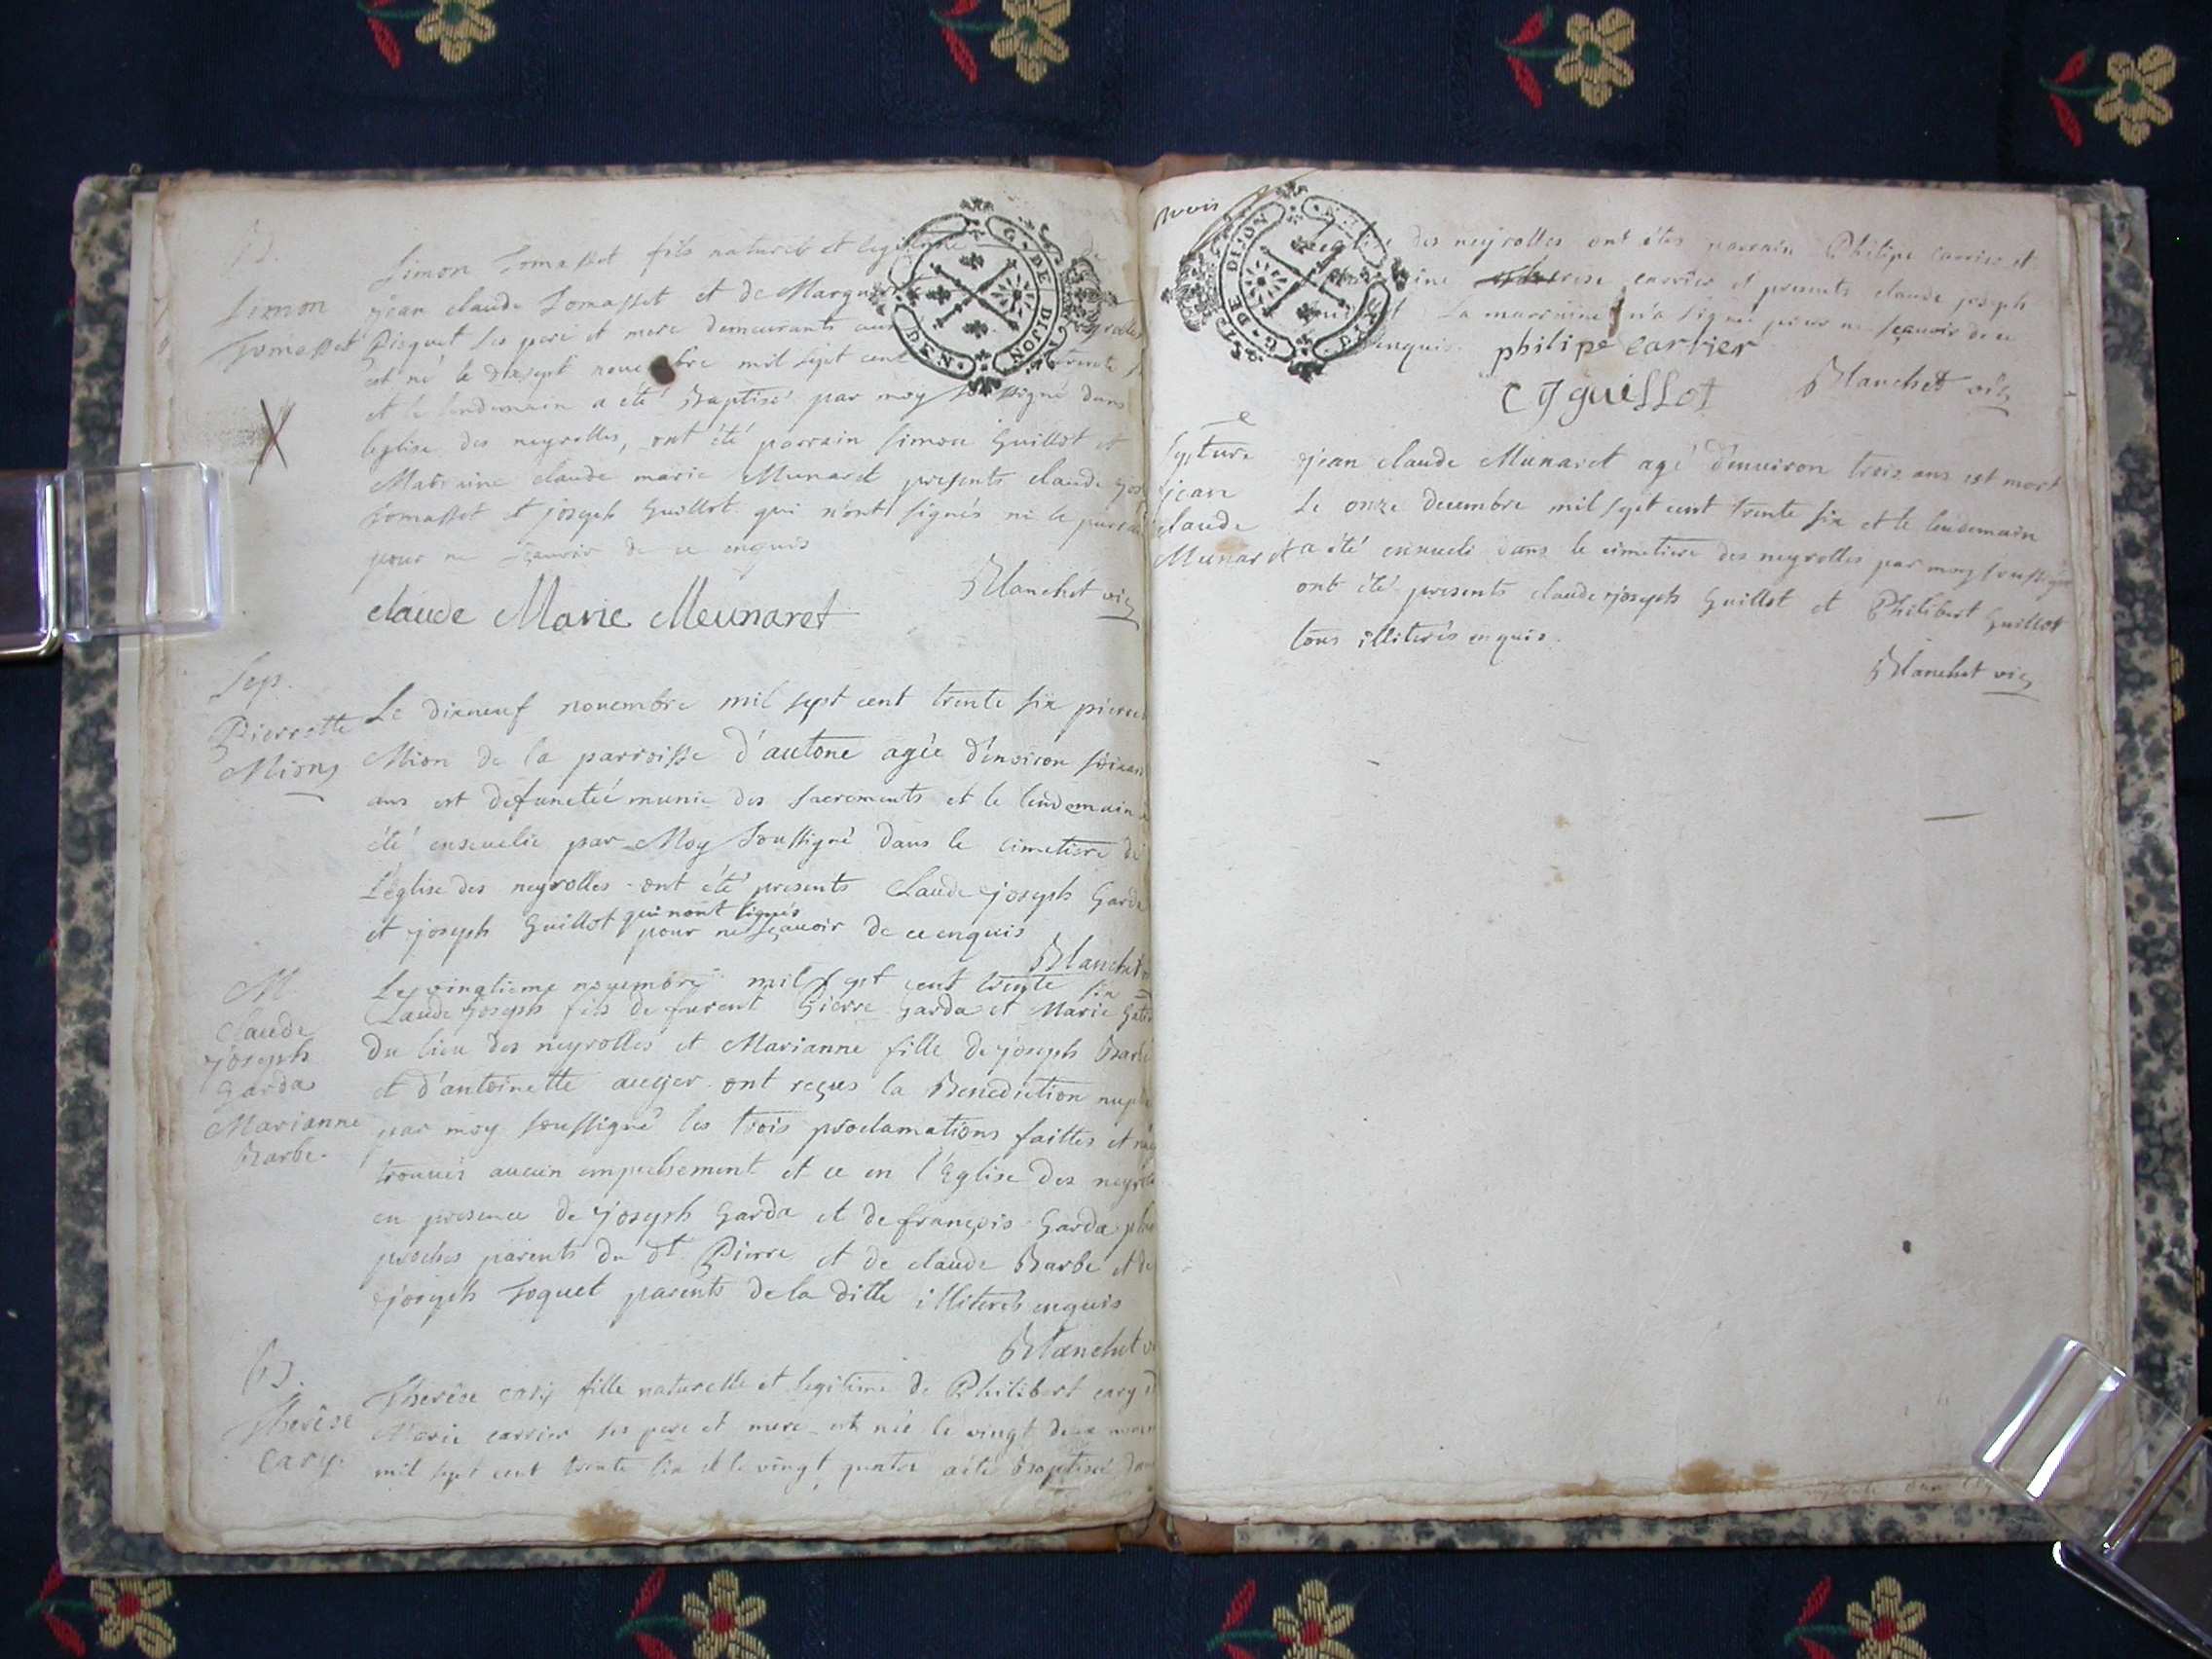 B.
Simon
Tomasset
Simon Tomasset fils naturel et legitime de
jean claude Tomasset et de Marguerite
Picquet ses pere et mere demeurants aux neyrolles
est né le dixsept novembre mil sept cent trente
et le lendemain a été Baptisé par moy soussigné dans
leglise des neyrolles, ont été parrain simon Guillot et
Marraine claude marie Munaret presents claude
Tomasset et joseph Guillot qui n'ont signés ni le parrain
pour ne sçavoir de ce enquis
Blanchet vic
claude Marie Meunaret
Sep.
Pierrette
Mion
Le dixneuf novembre mil sept cent trente six
Mion de la parroisse d'autone agée d'environ
ans est defunctée munie des sacrements et le lendemain a
été ensevelie par Moy soussigné dans le cimetiere de
L'église des neyrolles ont été presents Claude joseph Garda
et joseph Guillot qui n'ont signés pour ne sçavoir de ce enquis
Blanchet
M.
Claude
joseph
Garda
Marianne
Barbe.
Le vingtieme novembre mil sept cent trente six
Claude joseph fils de furent Pierre Garda et Marie
du lieu des neyrolles et Marianne fille de joseph Barbe
et d'antoinette auger ont reçus la Benediction
par moy soussigné les trois proclamations faittes et
trouvés aucun empechement et ce en l'Eglise des
en presence de joseph Garda et de françois Garda plus
proches parents du dt Pierre et de claude Barbe et de
joseph Toquet parents de la ditte illiterés enquis
Blanchet
B.
Therèse
cary.
Therèse cary fille naturelle et legitime de Philibert cary et
Marie carrier ses pere et mere est née le vingt deux
mil sept cent trente six et le vingt quatre a été Baptisée dans
G. DE DIJON
G. DE DIJON
leglise des neyrolles ont étés parrain Philipe carrier et
carrier et presents claude joseph
La marraine n'a signé pour ne sçavoir de ce
enquis. philipe carrier
Blanchet vic
c J guillot
Septure
jean
claude
Munaret
jean claude Munaret agé d'environ trois ans est mort
Le onze decembre mil sept cent trente six et le lendemain
a été enseveli dans le cimetiere des neyrolles par moy soussigné
ont été presents claude joseph Guillot et Philibert Guillot
tous illiterés enquis.
Blanchet vic